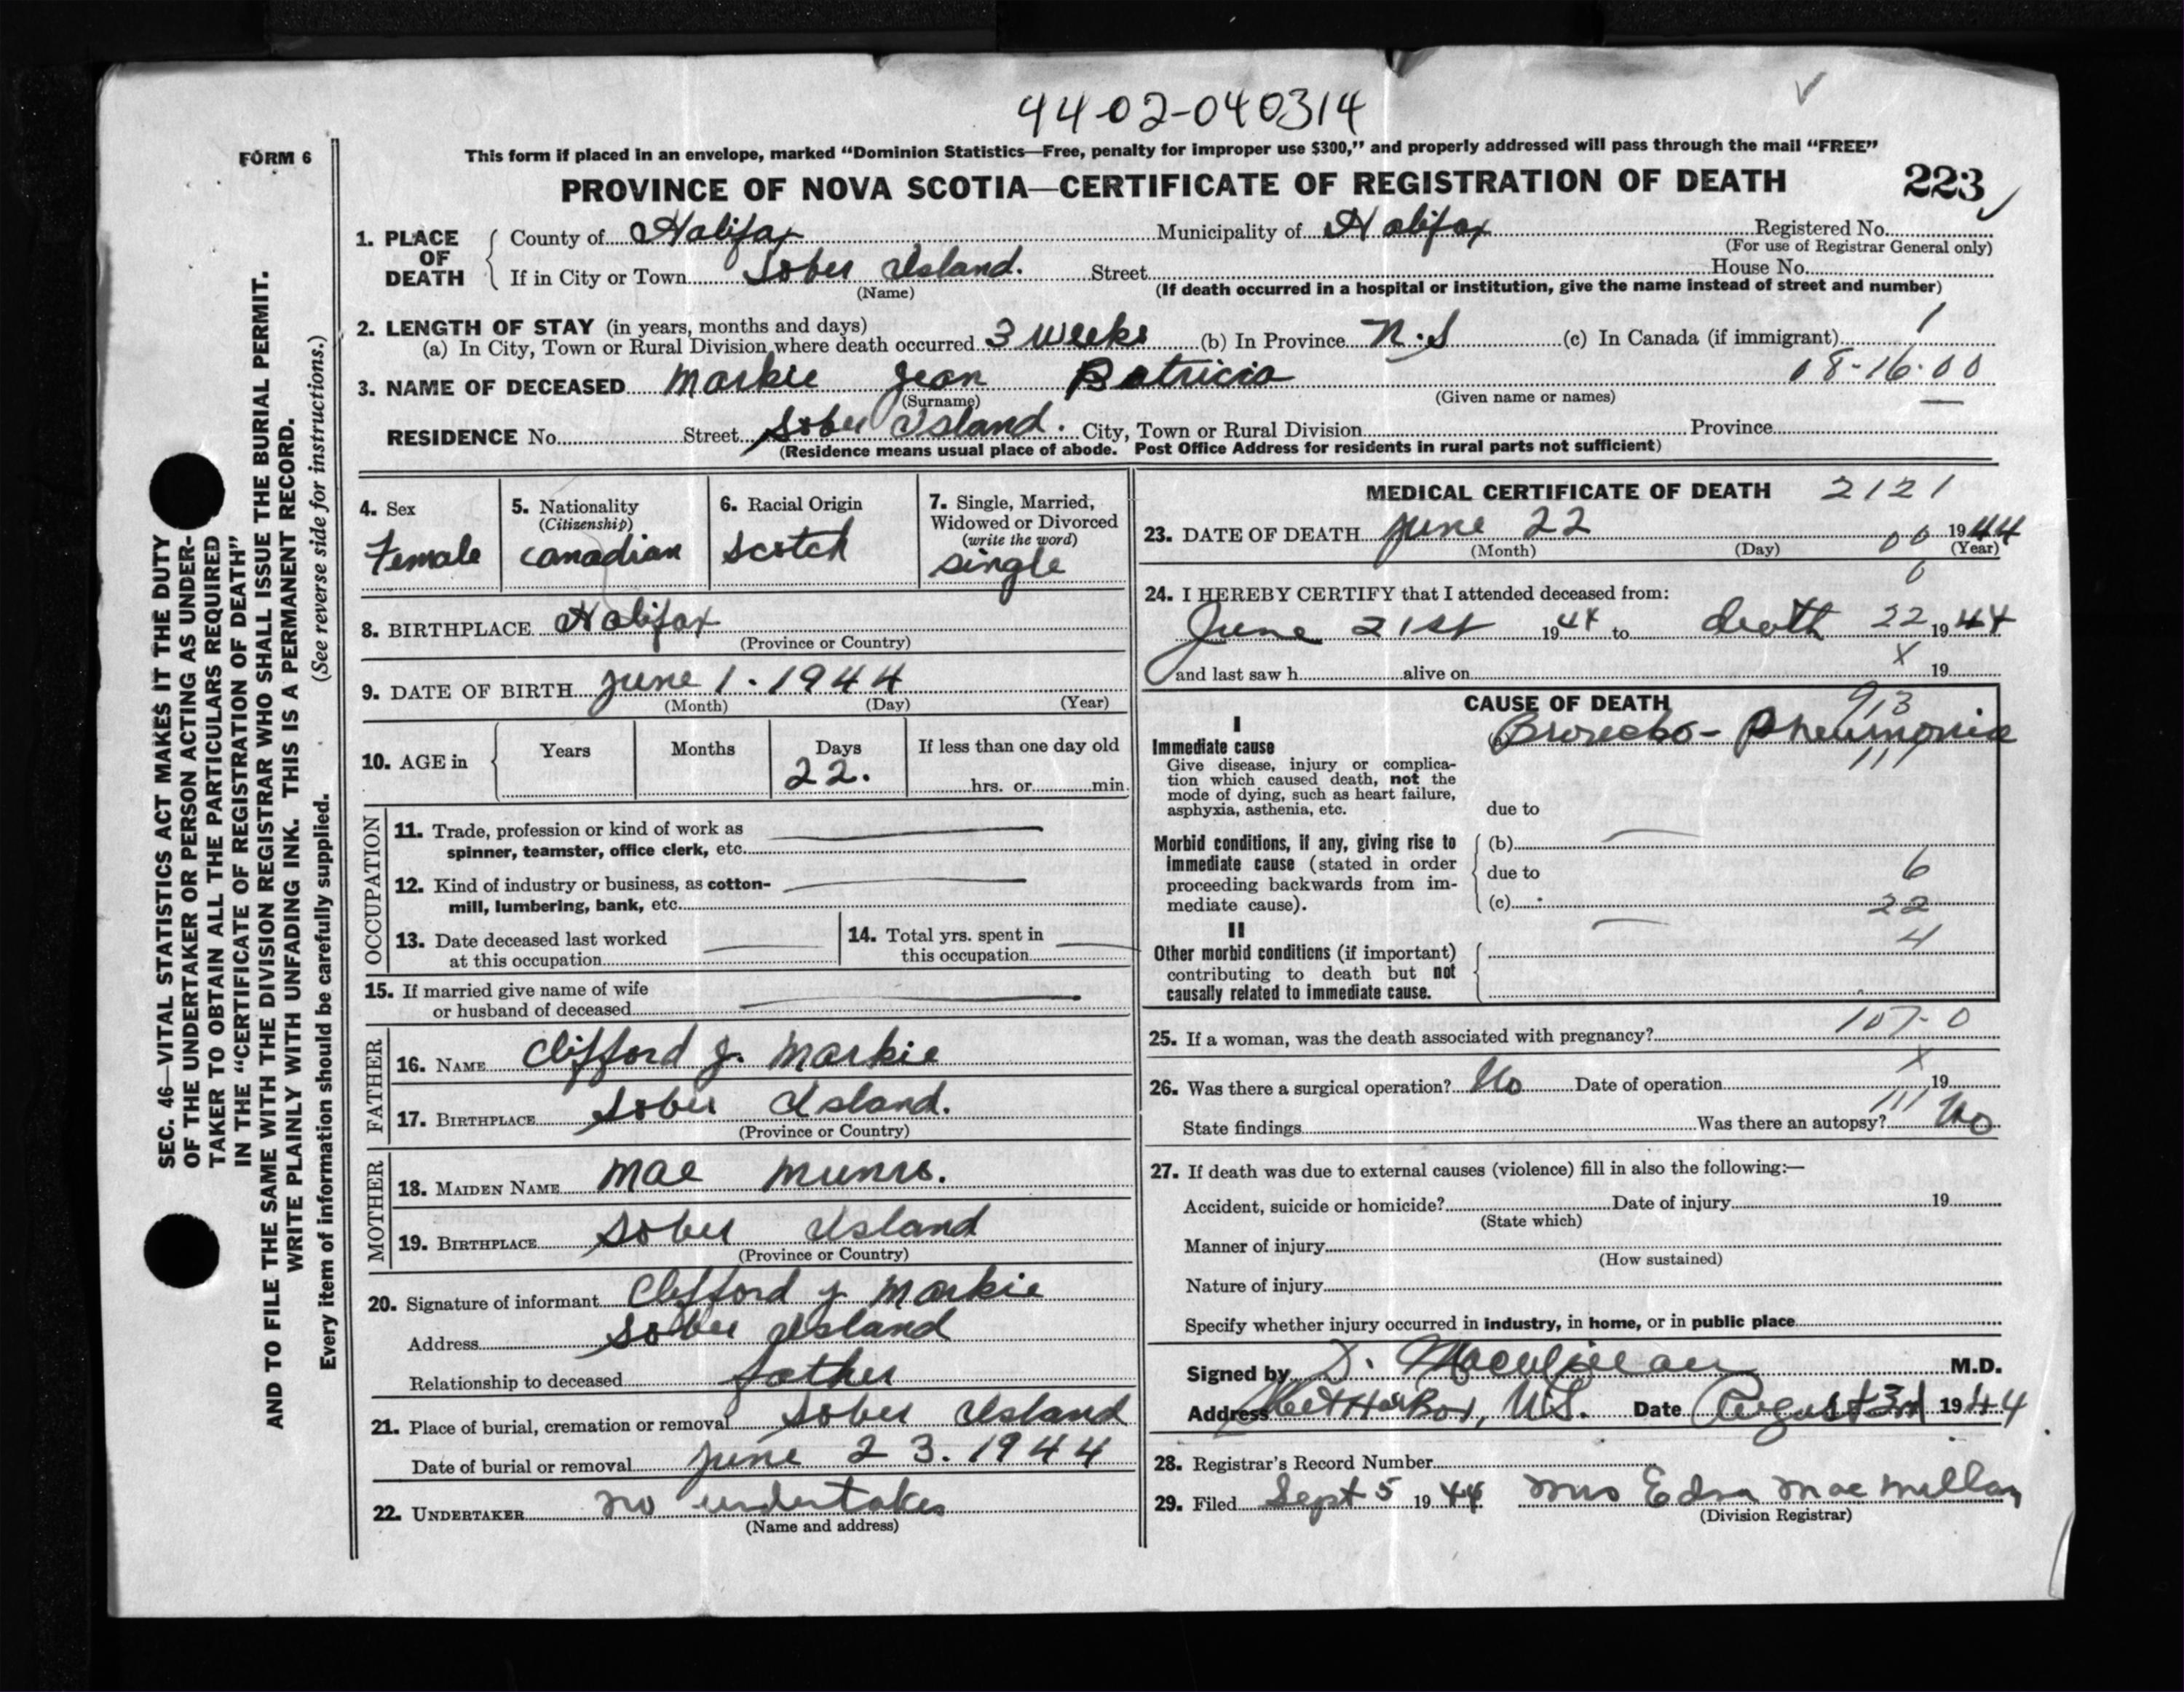 44-02-040314
FORM 6
This form if placed in an envelope, marked “Dominion Statistics—Free, penalty for improper use $300,” and properly addressed will pass through the mail “FREE”
PROVINCE OF NOVA SCOTIA—CERTIFICATE OF REGISTRATION OF DEATH 223
1. PLACE OF DEATH
County of Halifax Municipality of Halifax Registered No.
(For use of Registrar General only)
If in City or Town Sober Island. Street House No.
(Name) (If death occurred in a hospital or institution, give the name instead of street and number)
2. LENGTH OF STAY (in years, months and days)
(a) In City, Town or Rural Division where death occurred 3 weeks (b) In Province N.S (c) In Canada (if immigrant) 1
3. NAME OF DECEASED Markie Jean Patricia 08-16-00
(Surname) (Given name or names)
RESIDENCE No. Street Sober Island. City, Town or Rural Division Province
(Residence means usual place of abode. Post Office Address for residents in rural parts not sufficient)
4. Sex
Female
5. Nationality
(Citizenship)
Canadian
6. Racial Origin
Scotch
7. Single, Married,
Widowed or Divorced
(write the word)
single
8. BIRTHPLACE Halifax
(Province or Country)
9. DATE OF BIRTH June 1. 1944
(Month) (Day) (Year)
10. AGE in Years Months Days If less than one day old
22. hrs. or min.
OCCUPATION
11. Trade, profession or kind of work as
spinner, teamster, office clerk, etc.
12. Kind of industry or business, as cotton-
mill, lumbering, bank, etc.
13. Date deceased last worked
at this occupation
14. Total yrs. spent in
this occupation
15. If married give name of wife
or husband of deceased
FATHER
16. NAME Clifford J. Markie
17. BIRTHPLACE Sober Island.
(Province or Country)
MOTHER
18. MAIDEN NAME Mae Munro.
19. BIRTHPLACE Sober Island
(Province or Country)
20. Signature of informant Clifford J Markie
Address Sober Island
Relationship to deceased father
21. Place of burial, cremation or removal Sober Island
Date of burial or removal June 23. 1944
22. UNDERTAKER no undertaker
(Name and address)
MEDICAL CERTIFICATE OF DEATH 2121
23. DATE OF DEATH June 22 00 1944
(Month) (Day) (Year)
0
24. I HEREBY CERTIFY that I attended deceased from:
June 21st 1944 to death 22 1944
and last saw h alive on X 19
CAUSE OF DEATH
913
I
Immediate cause
Give disease, injury or complica-
tion which caused death, not the
mode of dying, such as heart failure,
asphyxia, asthenia, etc.
(a) Broncho-Pneumonia
111
due to
Morbid conditions, if any, giving rise to
immediate cause (stated in order
proceeding backwards from im-
mediate cause).
(b)
due to 6
(c) 22
II
4
Other morbid conditions (if important)
contributing to death but not
causally related to immediate cause.
25. If a woman, was the death associated with pregnancy? 107-0
26. Was there a surgical operation? No Date of operation X 19
State findings Was there an autopsy? 111 No
27. If death was due to external causes (violence) fill in also the following:—
Accident, suicide or homicide? Date of injury 19
(State which)
Manner of injury
(How sustained)
Nature of injury
Specify whether injury occurred in industry, in home, or in public place
Signed by D. M.D.
Address Sheet Harbor, N.S. Date August 3rd 1944
28. Registrar's Record Number
29. Filed Sept 5 1944 Mrs Edna MacMillan
(Division Registrar)
SEC. 46—VITAL STATISTICS ACT MAKES IT THE DUTY
OF THE UNDERTAKER OR PERSON ACTING AS UNDER-
TAKER TO OBTAIN ALL THE PARTICULARS REQUIRED
IN THE “CERTIFICATE OF REGISTRATION OF DEATH”
AND TO FILE THE SAME WITH THE DIVISION REGISTRAR WHO SHALL ISSUE THE BURIAL PERMIT.
WRITE PLAINLY WITH UNFADING INK. THIS IS A PERMANENT RECORD.
Every item of information should be carefully supplied. (See reverse side for instructions.)